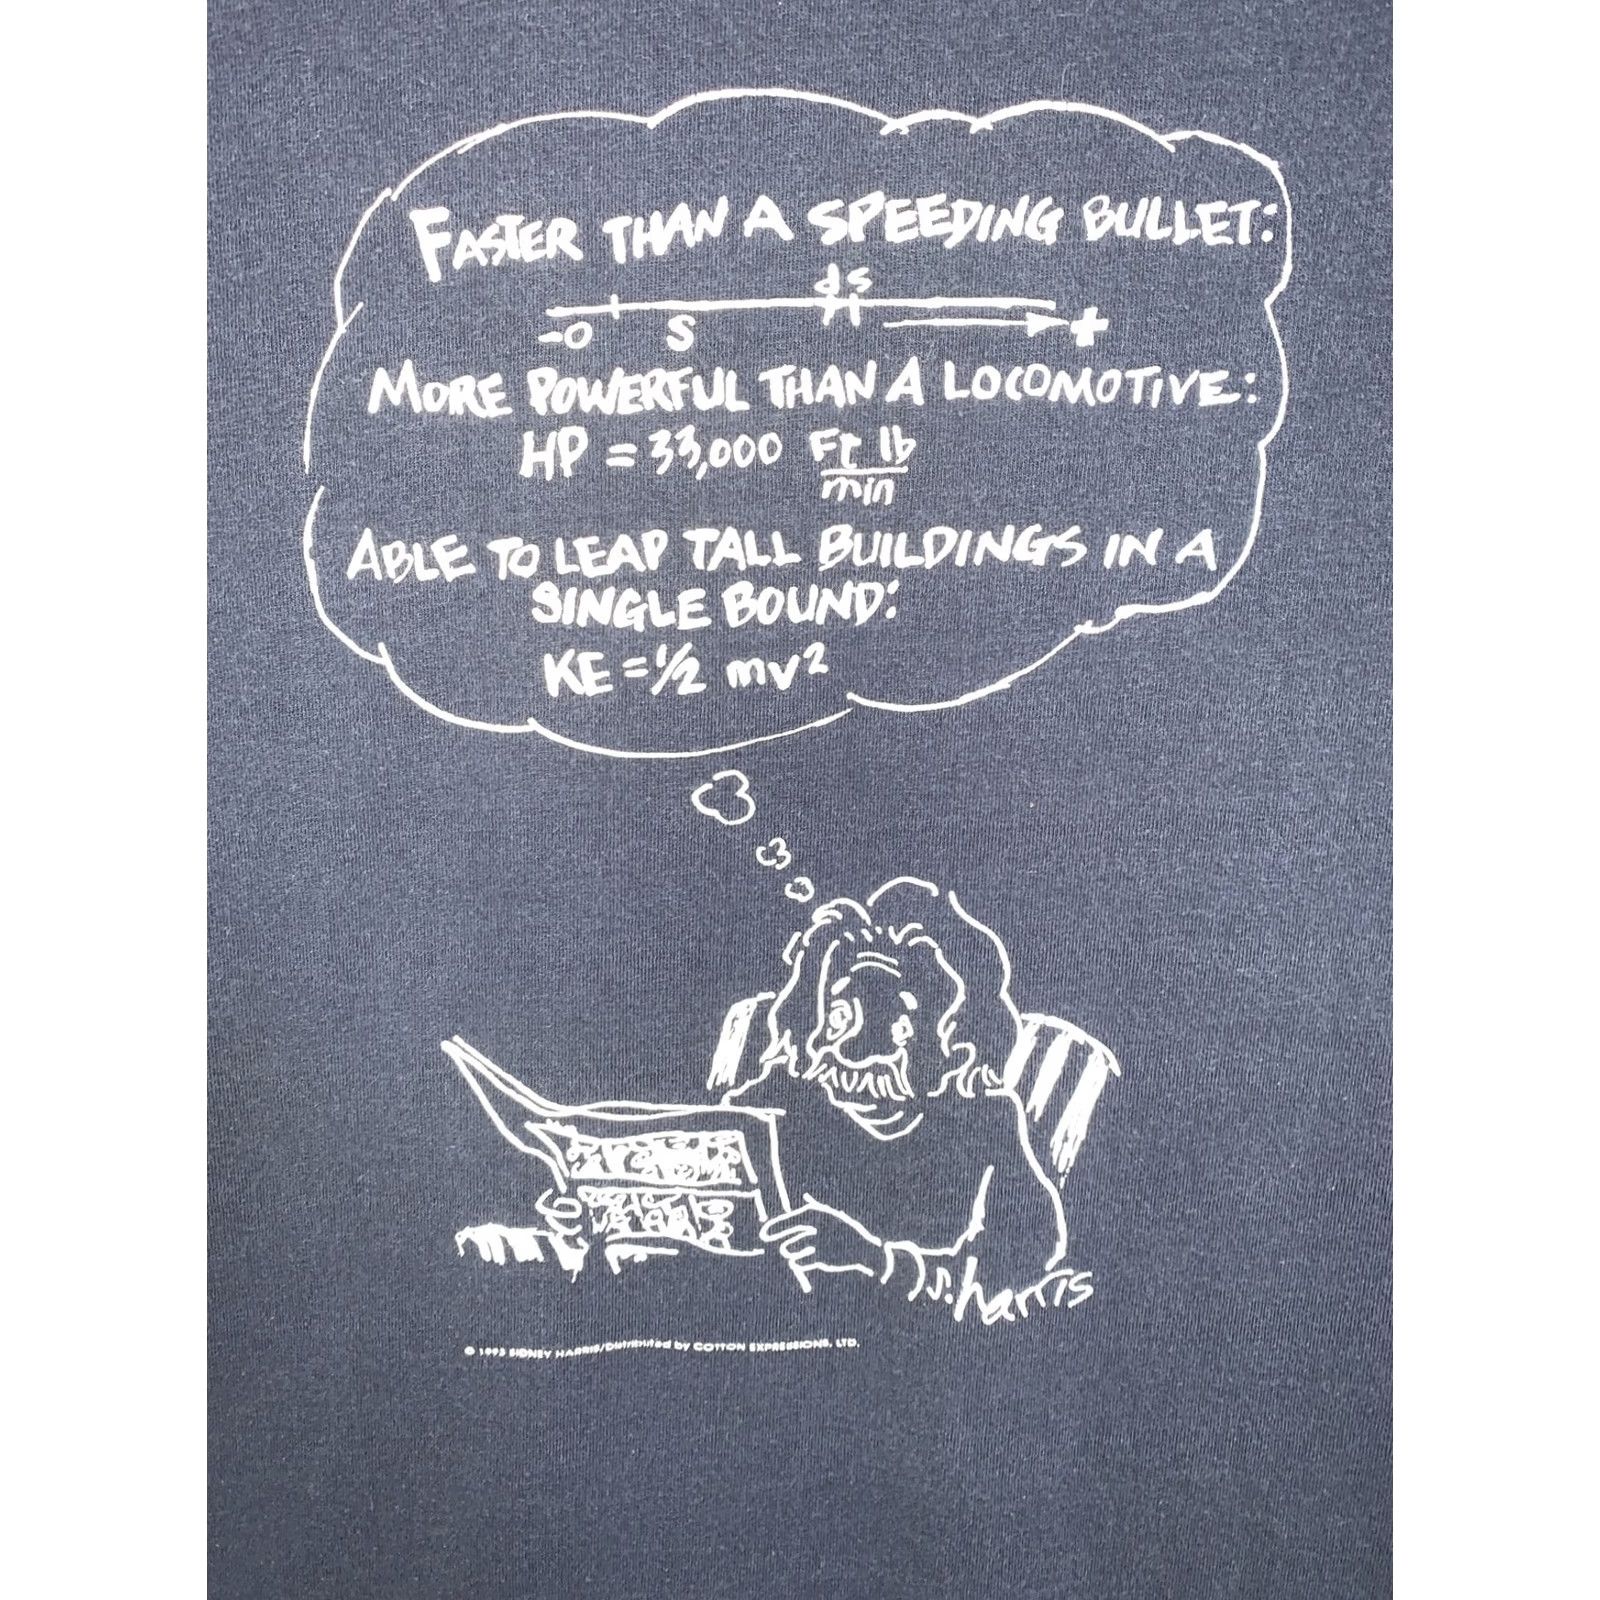 FASTER THAN A SPEEDING BULLET:
ds
-O S +
MORE POWERFUL THAN A LOCOMOTIVE:
HP = 33,000 Ft lb
min
ABLE TO LEAP TALL BUILDINGS IN A
SINGLE BOUND:
KE = 1/2 mv²
s. harris
© 1993 SIDNEY HARRIS/Distributed by COTTON EXPRESSIONS, LTD.